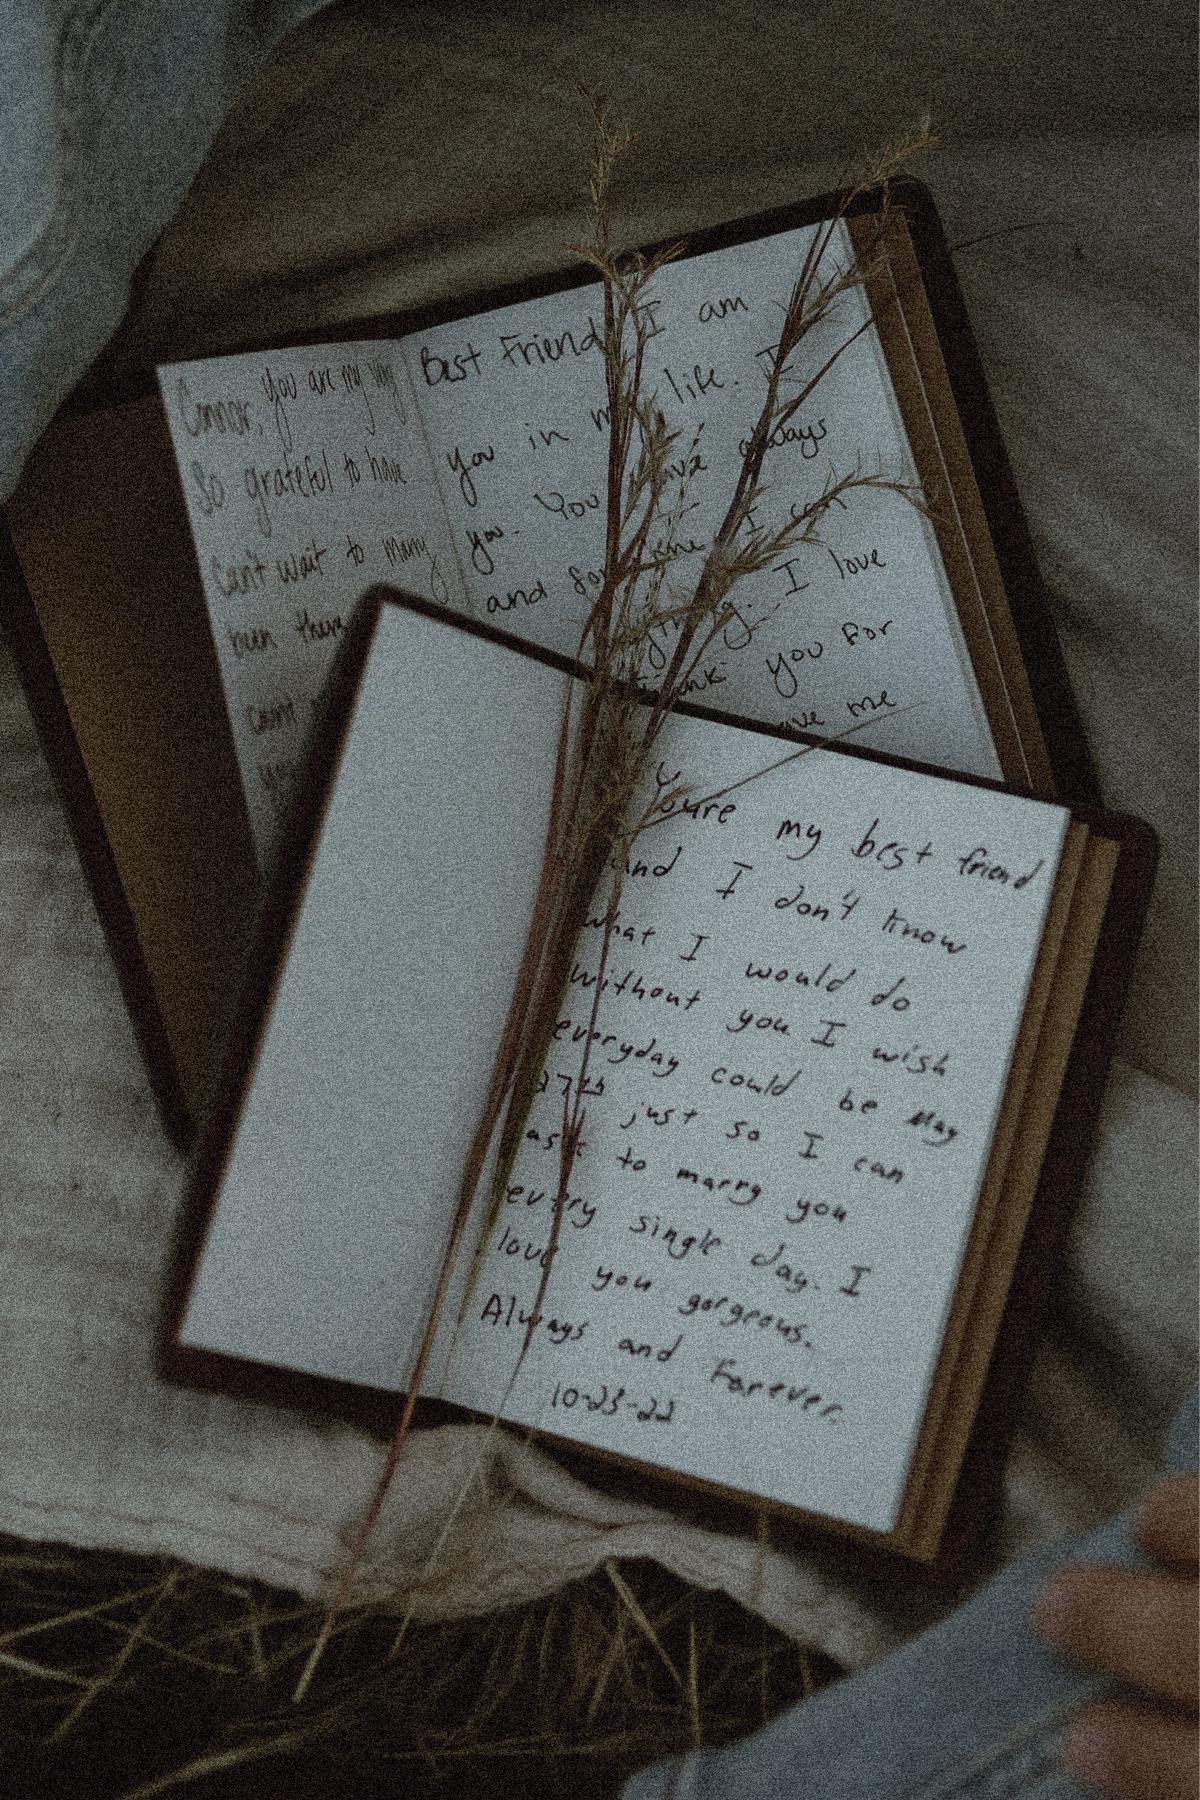 Connor, you are my
So grateful to have
Can't wait to marry
Best Friend, I am
you in my life. I
you. You have always
and for me I can
I love
Thank you for
me
Youre my best friend
and I don't know
what I would do
without you I wish
everyday could be May
27th just so I can
ask to marry you
every single day. I
love you gorgeous.
Always and Forever.
10-23-22